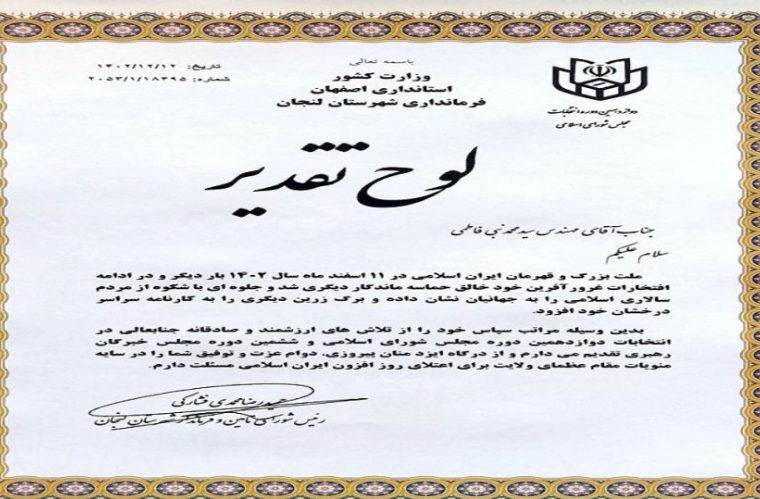 باسمه تعالی
وزارت کشور
استانداری اصفهان
فرمانداری شهرستان لنجان
تاریخ: ۱۴۰۲/۱۲/۱۲
شماره: ۲۰۵۳/۱/۱۸۴۹۵
دوازدهمین دوره انتخابات
مجلس شورای اسلامی
لوح تقدیر
جناب آقای مهندس سید محمد نبی فاطمی
سلام علیکم
ملت بزرگ و قهرمان ایران اسلامی در ۱۱ اسفند ماه سال ۱۴۰۲ بار دیگر و در ادامه
افتخارات غرورآفرین خود خالق حماسه ماندگار دیگری شد و جلوه ای با شکوه از مردم
سالاری اسلامی را به جهانیان نشان داده و برگ زرین دیگری را به کارنامه سراسر
درخشان خود افزود.
بدین وسیله مراتب سپاس خود را از تلاش های ارزشمند و صادقانه جنابعالی در
انتخابات دوازدهمین دوره مجلس شورای اسلامی و ششمین دوره مجلس خبرگان
رهبری تقدیم می دارم و از درگاه ایزد منان پیروزی، دوام عزت و توفیق شما را در سایه
منویات مقام عظمای ولایت برای اعتلای روز افزون ایران اسلامی مسئلت دارم.
حمیدرضا محمدی فشارکی
رئیس شورای تامین و فرماندار شهرستان لنجان